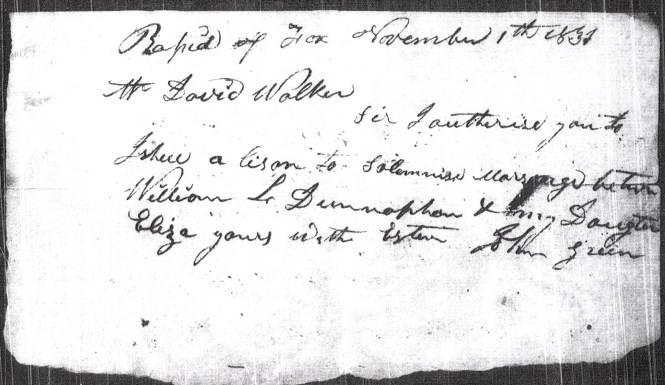 Rapid of Fox November 1th 1831
Mr David Walker
Sir I autherise you to
Ishue a lison to Solemnise Marrage betwen
William L Dunnaphan & my Daugter
Eliza yours with Esteem John Green